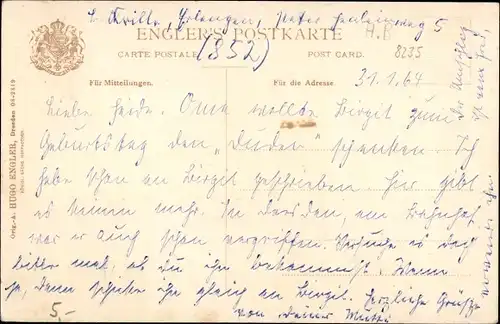 Erlangen, Peter Henlein weg 5
ENGLER'S POSTKARTE
(852)
A.B
8235
CARTE POSTALE
POST CARD.
Für Mitteilungen.
Für die Adresse
31.1.64
Liebe Heide. Oma wollte Birgit zum
Geburtstag den „Duden“ schenken. Ich
habe schon an Birgit geschrieben. Hier gibt
es keinen mehr. In Dresden, am Bahnhof
war er auch schon vergriffen. Versuche es doch
bitte mal, ob du ihn bekommst. Wenn
ja, dann schicke ihn gleich an Birgit. Herzliche Grüße
von Deiner Mutti
5,-
Orig.-A. HUGO ENGLER, Dresden 04-2419